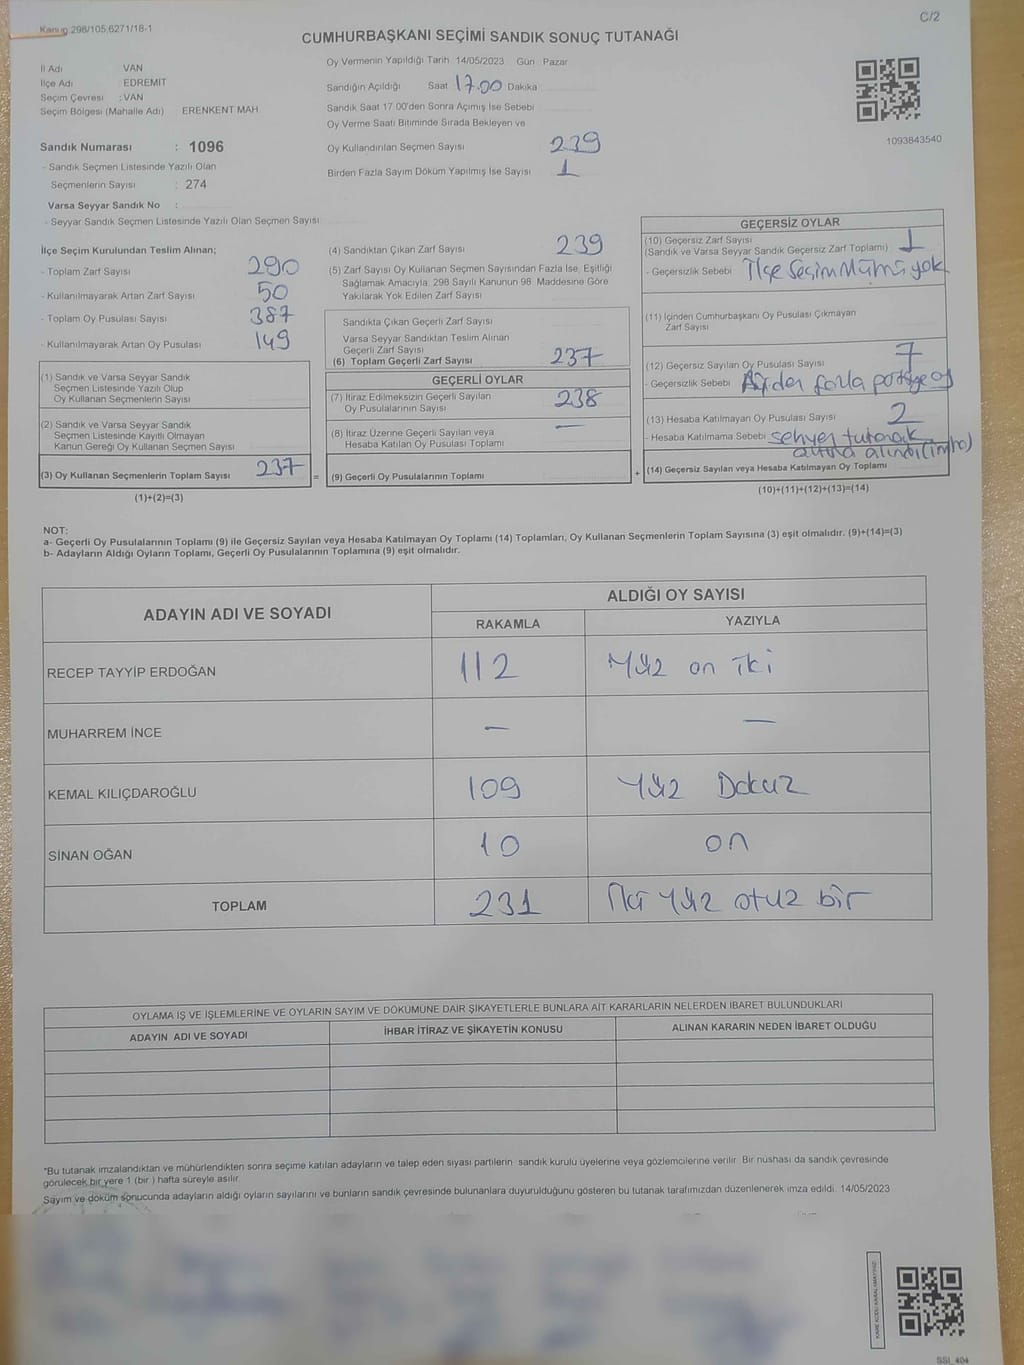 Kanun 298/105,6271/18-1
C/2
CUMHURBAŞKANI SEÇİMİ SANDIK SONUÇ TUTANAĞI
İl Adı VAN
İlçe Adı : EDREMİT
Seçim Çevresi : VAN
Seçim Bölgesi (Mahalle Adı) : ERENKENT MAH.
Sandık Numarası : 1096
- Sandık Seçmen Listesinde Yazılı Olan
Seçmenlerin Sayısı : 274
Varsa Seyyar Sandık No :
- Seyyar Sandık Seçmen Listesinde Yazılı Olan Seçmen Sayısı
Oy Vermenin Yapıldığı Tarih : 14/05/2023 Gün : Pazar
Sandığın Açıldığı Saat 17.00 Dakika
Sandık Saat 17 00'den Sonra Açımış İse Sebebi
Oy Verme Saati Bitiminde Sırada Bekleyen ve
Oy Kullandırılan Seçmen Sayısı 239
Birden Fazla Sayım Döküm Yapılmış İse Sayısı 1
1093843540
İlçe Seçim Kurulundan Teslim Alınan;
- Toplam Zarf Sayısı 290
- Kullanılmayarak Artan Zarf Sayısı 50
- Toplam Oy Pusulası Sayısı 387
- Kullanılmayarak Artan Oy Pusulası 149
(1) Sandık ve Varsa Seyyar Sandık
Seçmen Listesinde Yazılı Olup
Oy Kullanan Seçmenlerin Sayısı
(2) Sandık ve Varsa Seyyar Sandık
Seçmen Listesinde Kayıtlı Olmayan
Kanun Gereği Oy Kullanan Seçmen Sayısı
(3) Oy Kullanan Seçmenlerin Toplam Sayısı 237 =
(1)+(2)=(3)
(4) Sandıktan Çıkan Zarf Sayısı 239
(5) Zarf Sayısı Oy Kullanan Seçmen Sayısından Fazla İse, Eşitliği
Sağlamak Amacıyla; 298 Sayılı Kanunun 98. Maddesine Göre
Yakılarak Yok Edilen Zarf Sayısı
Sandıkta Çıkan Geçerli Zarf Sayısı
Varsa Seyyar Sandıktan Teslim Alınan
Geçerli Zarf Sayısı
(6) Toplam Geçerli Zarf Sayısı 237
GEÇERLİ OYLAR
(7) İtiraz Edilmeksizin Geçerli Sayılan
Oy Pusulalarının Sayısı 238
(8) İtiraz Üzerine Geçerli Sayılan veya
Hesaba Katılan Oy Pusulası Toplamı —
(9) Geçerli Oy Pusulalarının Toplamı +
GEÇERSİZ OYLAR
(10) Geçersiz Zarf Sayısı 1
(Sandık ve Varsa Seyyar Sandık Geçersiz Zarf Toplamı)
- Geçersizlik Sebebi İlçe Seçim Mümü yok
(11) İçinden Cumhurbaşkanı Oy Pusulası Çıkmayan
Zarf Sayısı
(12) Geçersiz Sayılan Oy Pusulası Sayısı 7
- Geçersizlik Sebebi fazla
(13) Hesaba Katılmayan Oy Pusulası Sayısı 2
- Hesaba Katılmama Sebebi sehven tutanak
altına alındı (imha)
(14) Geçersiz Sayılan veya Hesaba Katılmayan Oy Toplamı
(10)+(11)+(12)+(13)=(14)
NOT:
a- Geçerli Oy Pusulalarının Toplamı (9) ile Geçersiz Sayılan veya Hesaba Katılmayan Oy Toplamı (14) Toplamları, Oy Kullanan Seçmenlerin Toplam Sayısına (3) eşit olmalıdır. (9)+(14)=(3)
b- Adayların Aldığı Oyların Toplamı, Geçerli Oy Pusulalarının Toplamına (9) eşit olmalıdır.
ADAYIN ADI VE SOYADI ALDIĞI OY SAYISI
RAKAMLA YAZIYLA
RECEP TAYYİP ERDOĞAN 112 Yüz on iki
MUHARREM İNCE — —
KEMAL KILIÇDAROĞLU 109 Yüz Dokuz
SİNAN OĞAN 10 on
TOPLAM 231 İki Yüz otuz bir
OYLAMA İŞ VE İŞLEMLERİNE VE OYLARIN SAYIM VE DÖKÜMÜNE DAİR ŞİKAYETLERLE BUNLARA AİT KARARLARIN NELERDEN İBARET BULUNDUKLARI
ADAYIN ADI VE SOYADI İHBAR İTİRAZ VE ŞİKAYETİN KONUSU ALINAN KARARIN NEDEN İBARET OLDUĞU
*Bu tutanak imzalandıktan ve mühürlendikten sonra seçime katılan adayların ve talep eden siyasi partilerin sandık kurulu üyelerine veya gözlemcilerine verilir. Bir nüshası da sandık çevresinde
görülecek bir yere 1 (bir ) hafta süreyle asılır.
Sayım ve döküm sonucunda adayların aldığı oyların sayılarını ve bunların sandık çevresinde bulunanlara duyurulduğunu gösteren bu tutanak tarafımızdan düzenlenerek imza edildi. 14/05/2023
KARE KODU KARALAMAYINIZ!
SSI_404